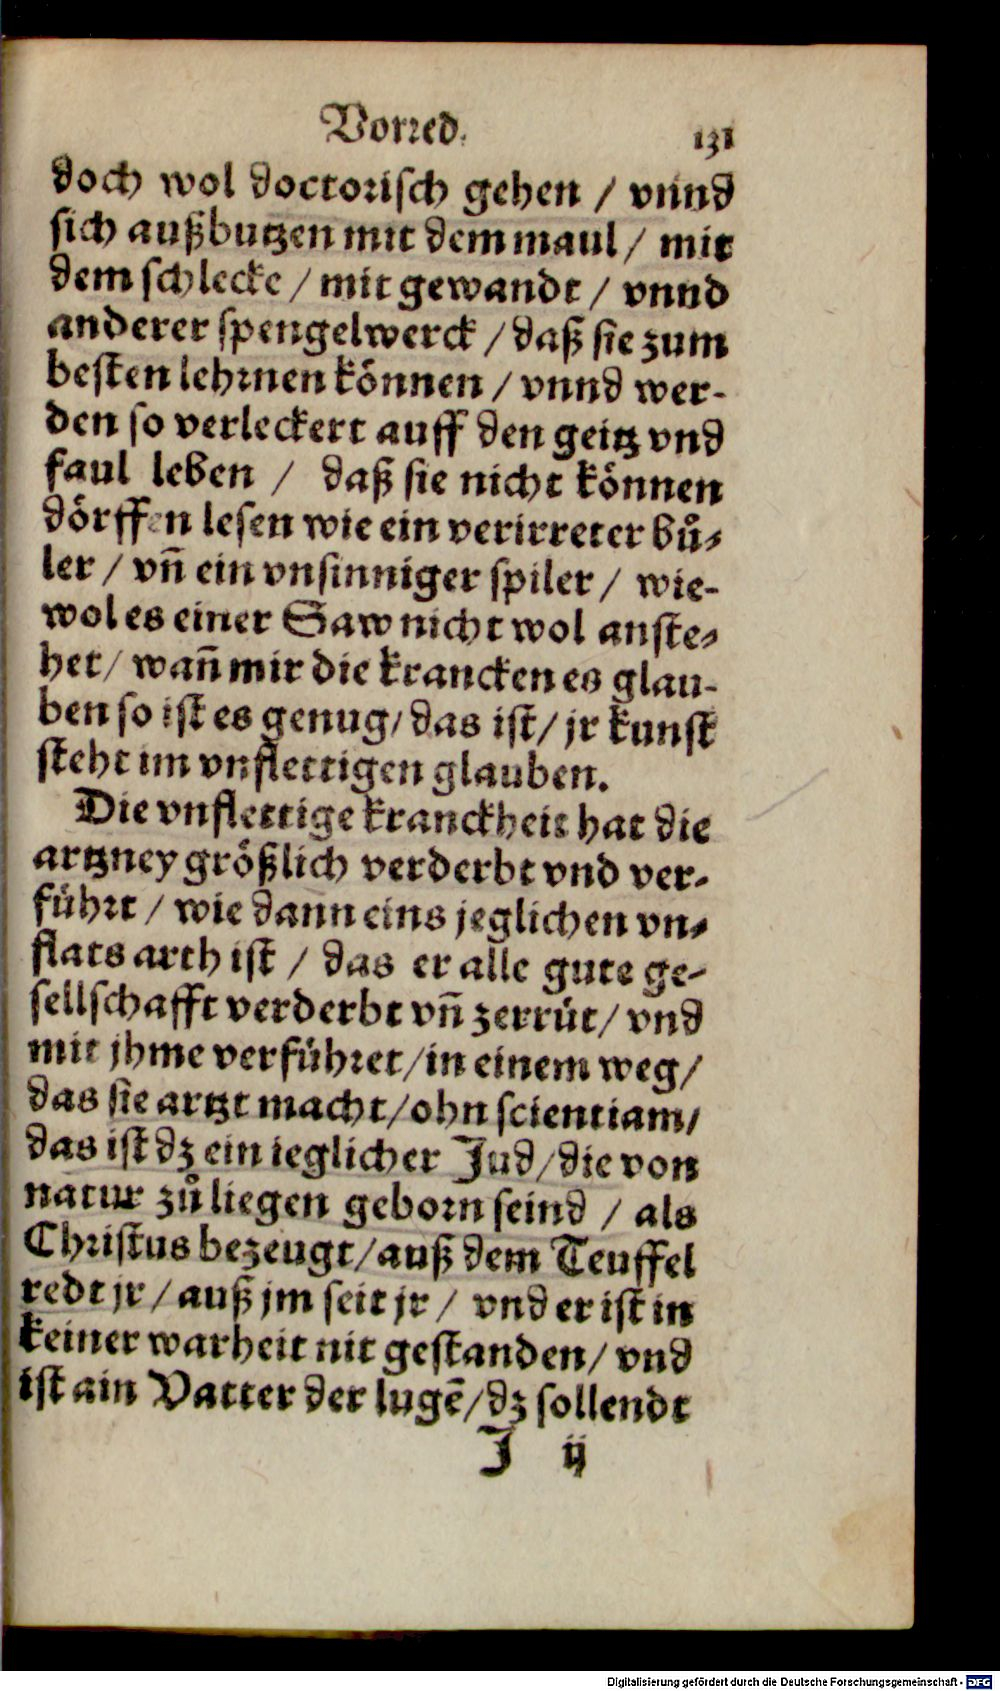 Vorred.
131
doch wol doctorisch gehen / vnnd
sich außbutzen mit dem maul / mit
dem schlecke / mit gewandt / vnnd
anderer spengelwerck / daß sie zum
besten lehrnen können / vnnd wer-
den so verleckert auff den geitz vnd
faul leben / daß sie nicht können
dörffen lesen wie ein verirreter bů-
ler / vn̄ ein vnsinniger spiler / wie-
wol es einer Saw nicht wol anste-
het / wan̄ mir die krancken es glau-
ben so ist es genug / das ist / jr kunst
steht im vnflettigen glauben.
Die vnflettige kranckheit hat die
artzney größlich verderbt vnd ver-
führt / wie dann eins jeglichen vn-
flats arth ist / das er alle gute ge-
sellschafft verderbt vn̄ zerrüt / vnd
mit jhme verführet / in einem weg /
das sie artzt macht / ohn scientiam /
das ist dz ein ieglicher Jud / die von
natur zů liegen geborn seind / als
Christus bezeugt / auß dem Teuffel
redt jr / auß jm seit jr / vnd er ist in
keiner warheit nit gestanden / vnd
ist ain Vatter der lugē / dz sollendt
J ij
Digitalisierung gefördert durch die Deutsche Forschungsgemeinschaft - DFG